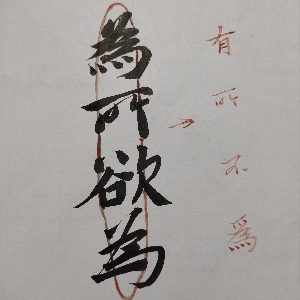 有所不為
為所欲為